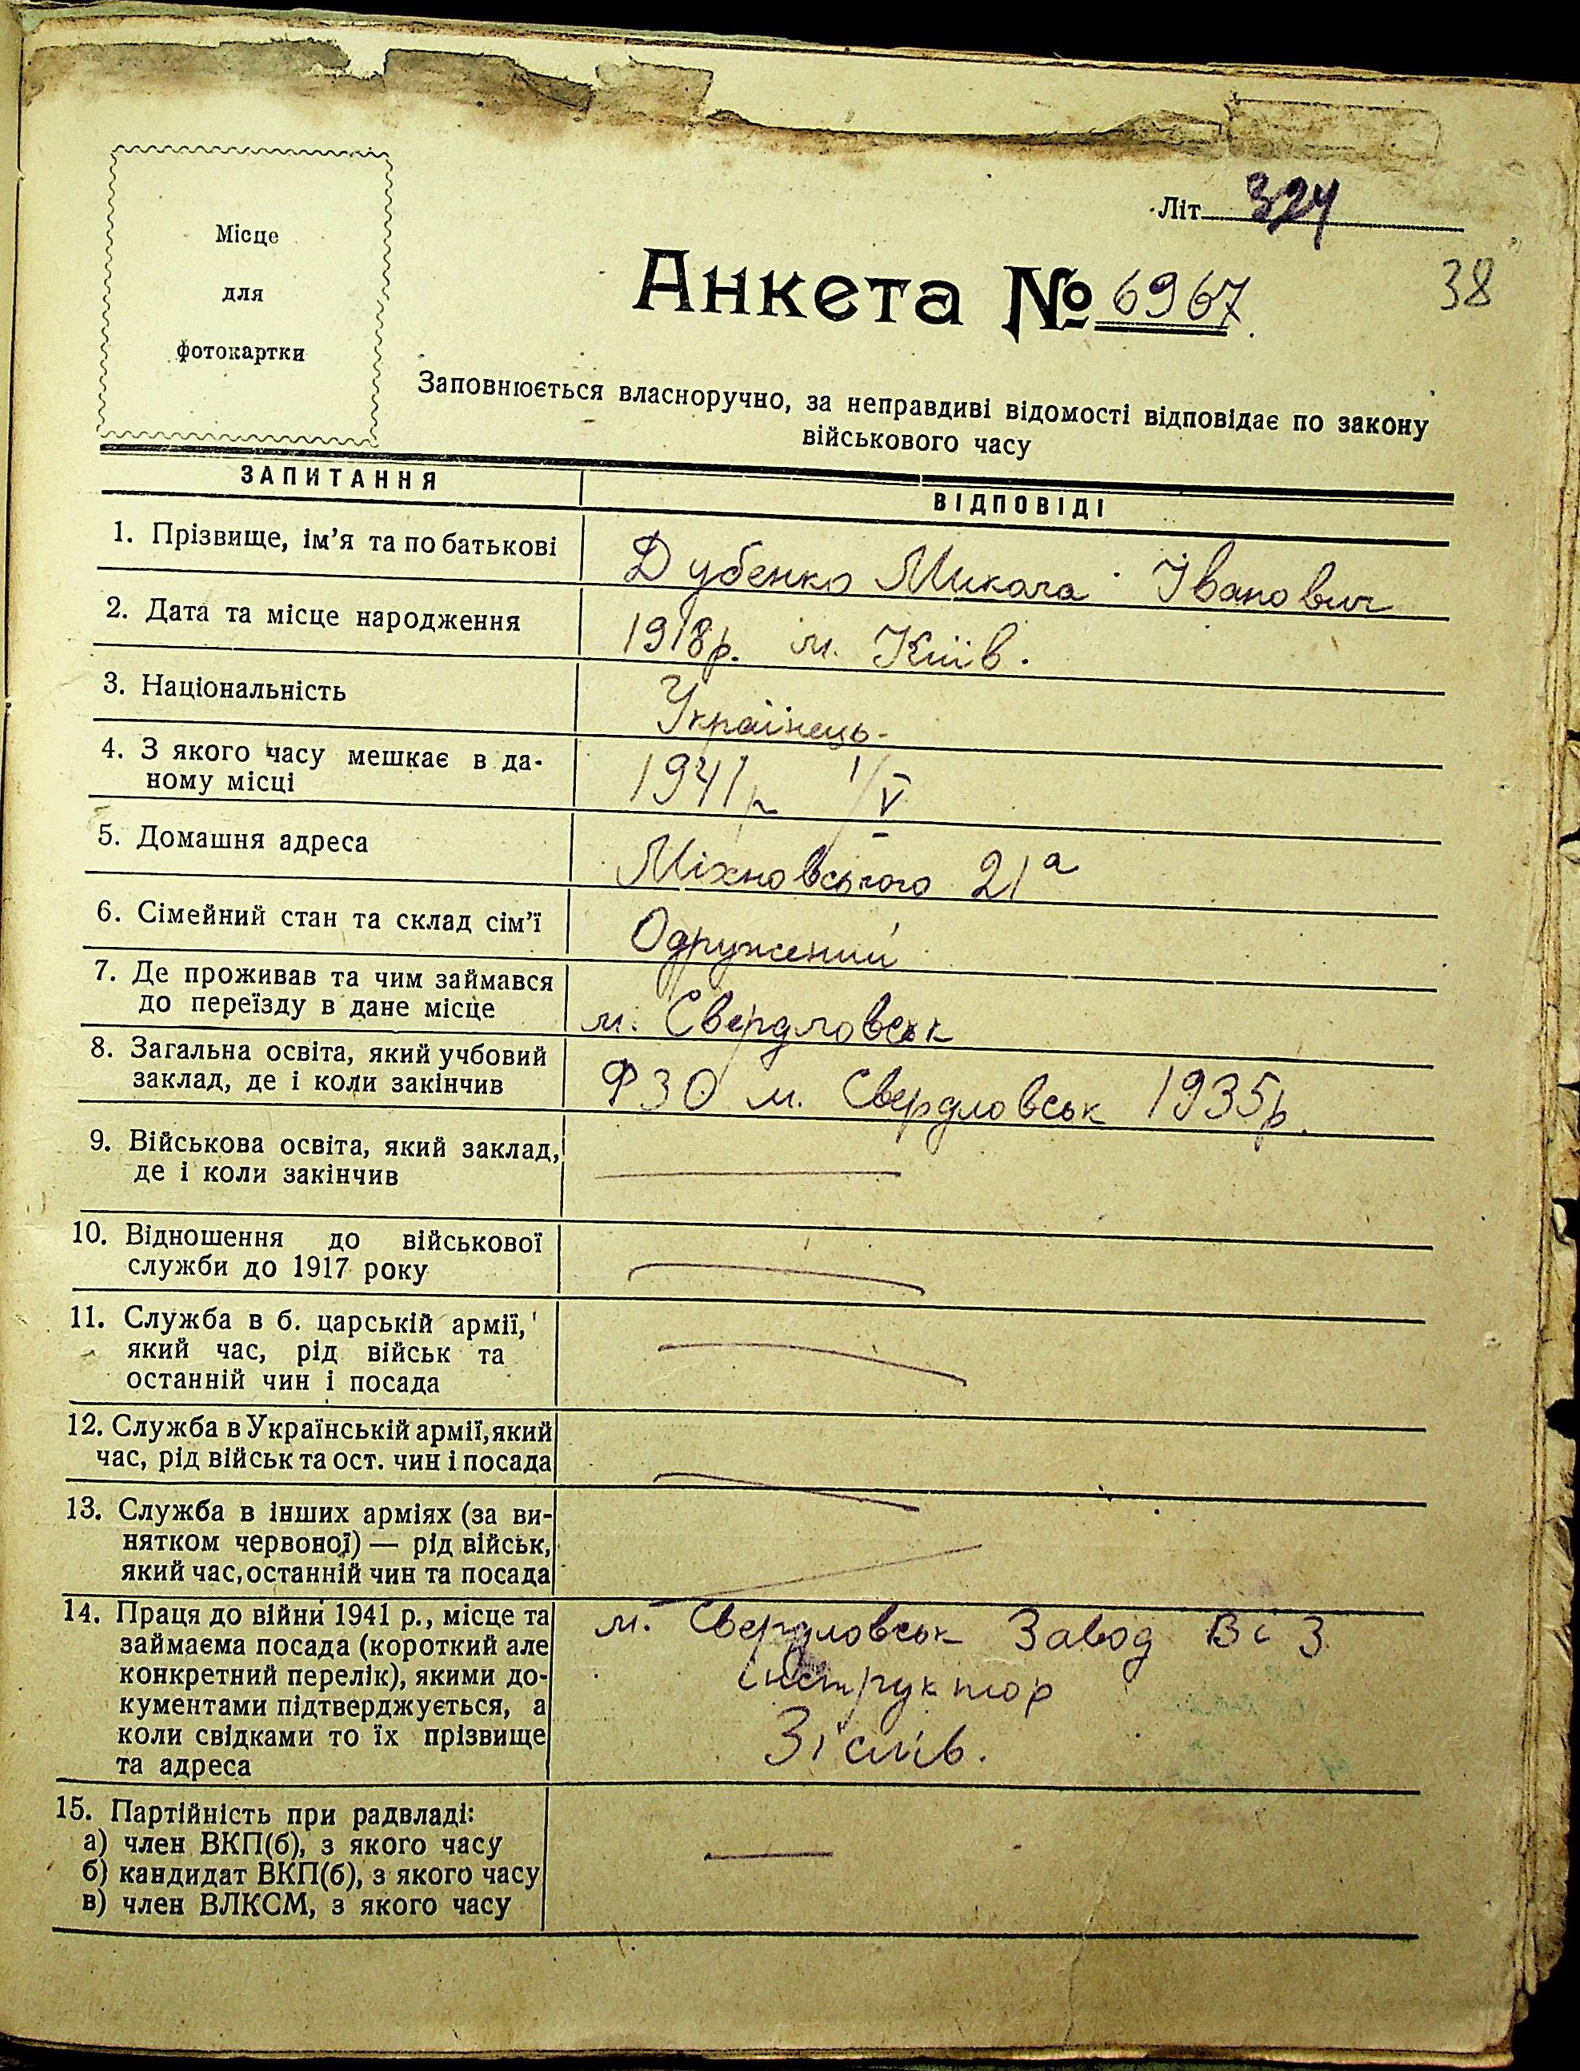 Місце
для
фотокартки
Літ. 324
38
Анкета № 6967
Заповнюється власноручно, за неправдиві відомості відповідає по закону
військового часу
ЗАПИТАННЯ ВІДПОВІДІ
1. Прізвище, ім'я та по батькові Дубенко Микола Іванович
2. Дата та місце народження 1918р. м. Київ.
3. Національність Українець.
4. З якого часу мешкає в да-
ному місці 1941р 1/V
5. Домашня адреса Міхновського 21а
6. Сімейний стан та склад сім'ї Одружений
7. Де проживав та чим займався
до переїзду в дане місце м. Свердловськ
8. Загальна освіта, який учбовий
заклад, де і коли закінчив ФЗО м. Свердловськ 1935р.
9. Військова освіта, який заклад,
де і коли закінчив —
10. Відношення до військової
служби до 1917 року —
11. Служба в б. царській армії,
який час, рід військ та
останній чин і посада —
12. Служба в Українській армії, який
час, рід військ та ост. чин і посада —
13. Служба в інших арміях (за ви-
нятком червоної) — рід військ,
який час, останній чин та посада —
14. Праця до війни 1941 р., місце та м. Свердловськ Завод В і З
займаєма посада (короткий але
конкретний перелік), якими до- інструктор
кументами підтверджується, а
коли свідками то їх прізвище Зі слів.
та адреса
15. Партійність при радвладі:
а) член ВКП(б), з якого часу —
б) кандидат ВКП(б), з якого часу
в) член ВЛКСМ, з якого часу